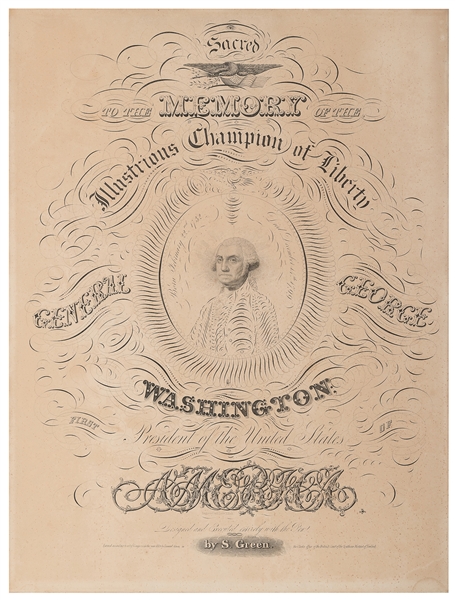 Sacred
TO THE MEMORY OF THE
Illustrious Champion of Liberty
GENERAL GEORGE
WASHINGTON.
FIRST
President of the United States
OF
AMERICA
Designed and Executed merely with the Pen
by S. Green.